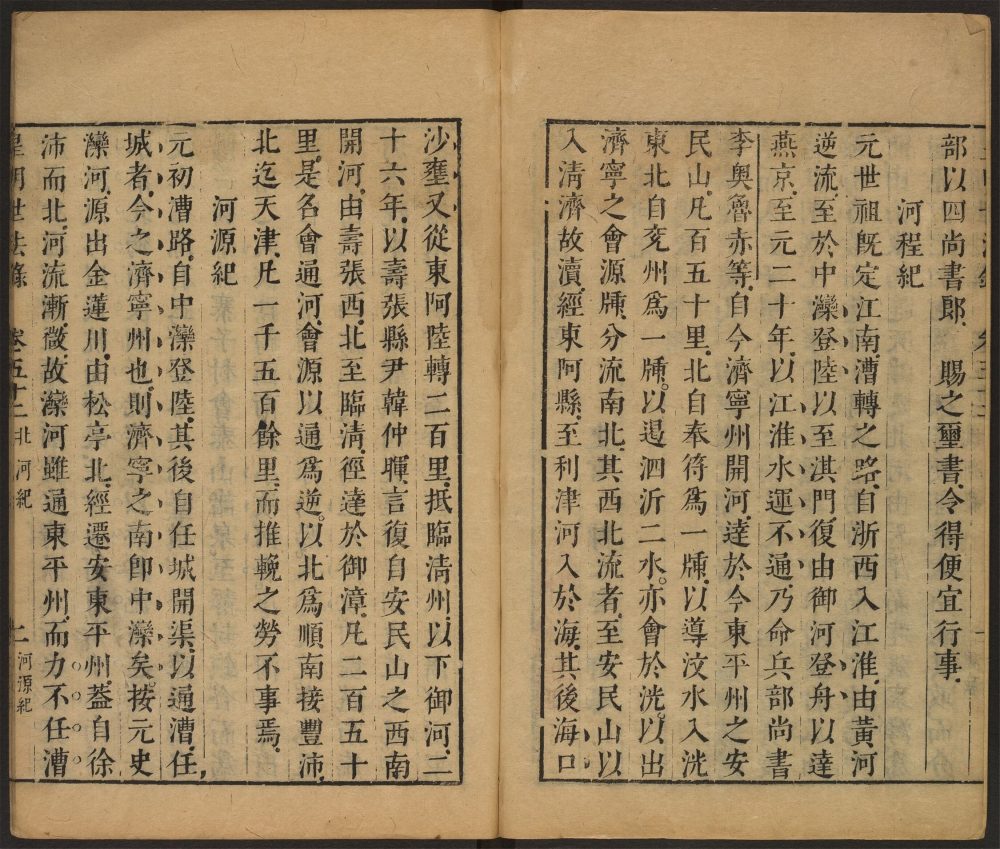 部以四尚書郎　賜之璽書令得便宜行事
河程紀
元世祖旣定江南漕轉之路自浙西入江淮由黃河
逆流至於中灤登陸以至淇門復由御河登舟以達
燕京至元二十年以江淮水運不通乃命兵部尚書
李奧魯赤等自今濟寧州開河達於今東平州之安
民山凡百五十里北自奉符爲一牐以導汶水入洸
東北自兗州爲一牐以遏泗沂二水亦會於洸以出
濟寧之會源牐分流南北其西北流者至安民山以
入清濟故瀆經東阿縣至利津河入於海其後海口
沙壅又從東阿陸轉二百里抵臨清州以下御河二
十六年以壽張縣尹韓仲暉言復自安民山之西南
開河由壽張西北至臨清徑達於御漳凡二百五十
里是名會通河會源以通爲逆以北爲順南接豐沛
北迄天津凡一千五百餘里而推輓之勞不事焉
河源紀
元初漕路自中灤登陸其後自任城開渠以通漕任
城者今之濟寧州也則濟寧之南卽中灤矣按元史
灤河源出金蓮川由松亭北經遷安東平州葢自徐
沛而北河流漸微故灤河雖通東平州而力不任漕
皇明世法錄　卷五十二　北河紀　河源紀